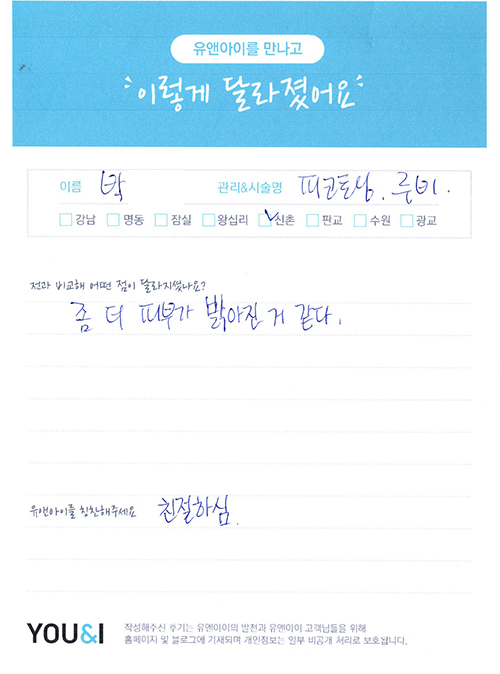 유앤아이를 만나고
이렇게 달라졌어요
이름 박 관리&시술명 피코토닝, 루비.
강남 명동 잠실 왕십리 신촌 판교 수원 광교
전과 비교해 어떤 점이 달라지셨나요?
좀 더 피부가 밝아진 거 같다.
유앤아이를 칭찬해주세요 친절하심.
YOU&I
작성해주신 후기는 유앤아이의 발전과 유앤아이 고객님들을 위해
홈페이지 및 블로그에 기재되며 개인정보는 일부 비공개 처리로 보호됩니다.